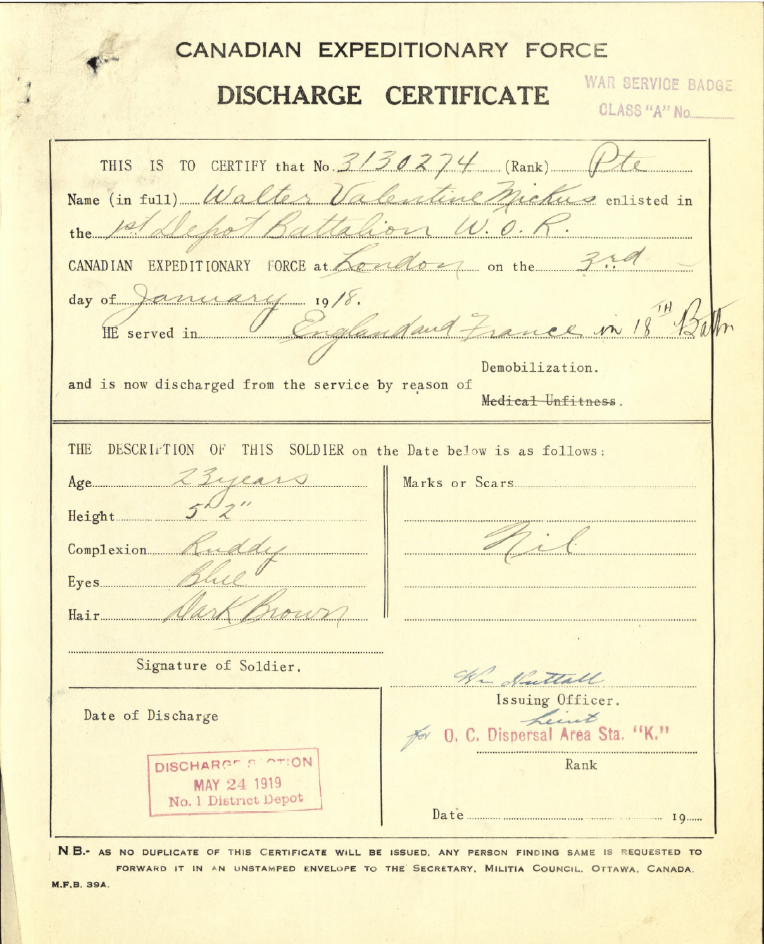 CANADIAN EXPEDITIONARY FORCE
DISCHARGE CERTIFICATE
WAR SERVICE BADGE
CLASS "A" No
THIS IS TO CERTIFY that No. 3130274 (Rank) Pte
Name (in full) Walter Valentine Mickus enlisted in
the 1st Depot Battalion W.O.R.
CANADIAN EXPEDITIONARY FORCE at London on the 3rd
day of January 1918.
HE served in England and France in 18TH Battn
and is now discharged from the service by reason of Demobilization.
Medical Unfitness.
THE DESCRIPTION OF THIS SOLDIER on the Date below is as follows:
Age 23 years
Height 5' 2"
Complexion Ruddy
Eyes Blue
Hair Dark Brown
Marks or Scars
Nil
Signature of Soldier.
Wm Nuttall
Issuing Officer.
Lieut
for O. C. Dispersal Area Sta. "K."
Rank
Date of Discharge
DISCHARGE SECTION
MAY 24 1919
No. 1 District Depot
Date 19
NB.- AS NO DUPLICATE OF THIS CERTIFICATE WILL BE ISSUED, ANY PERSON FINDING SAME IS REQUESTED TO
FORWARD IT IN AN UNSTAMPED ENVELOPE TO THE SECRETARY, MILITIA COUNCIL, OTTAWA, CANADA.
M.F.B. 39A.